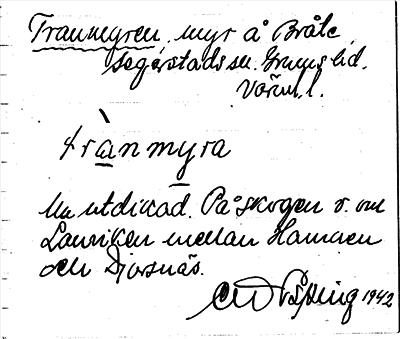 Tranmyren, myr å Bråte,
Segerstads sn. Grums hd.
Värml.
trànmyra
Nu utdikad. På skogen v. om
Lanviken mellan Hamnen
och Djorsnäs.
1942